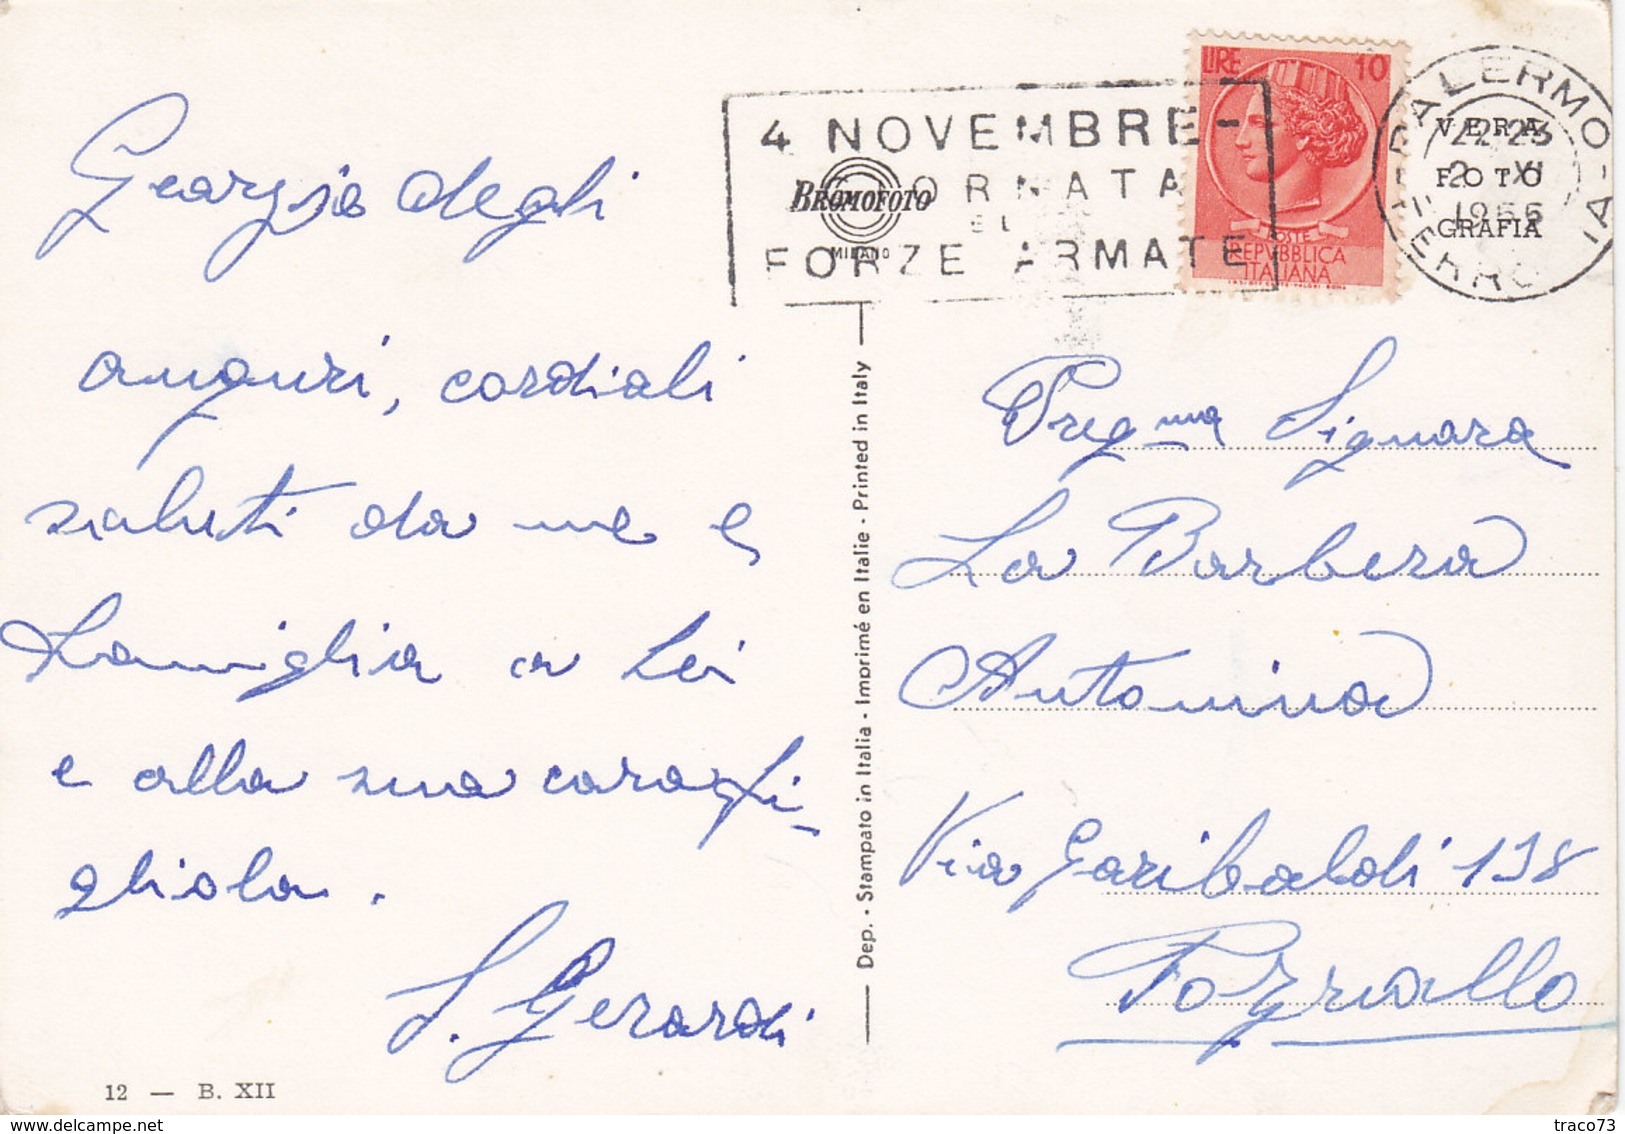 Grazie degli
auguri, cordiali
saluti da me e
famiglia a Lei
e alla sua cara fi-
gliola.
S. Gerardi
12 — B. XII
4 NOVEMBRE -
GIORNATA
DELLE
FORZE ARMATE
BROMOFOTO
MILANO
LIRE 10
POSTE
REPVBBLICA
ITALIANA
PALERMO
FERROVIA
22-23
2 XI
1956
VERA
FOTO
GRAFIA
Dep. - Stampato in Italia - Imprimé en Italie - Printed in Italy
Preg.ma Signora
La Barbera
Antonina
Via Garibaldi 138
Pozzallo
traco73